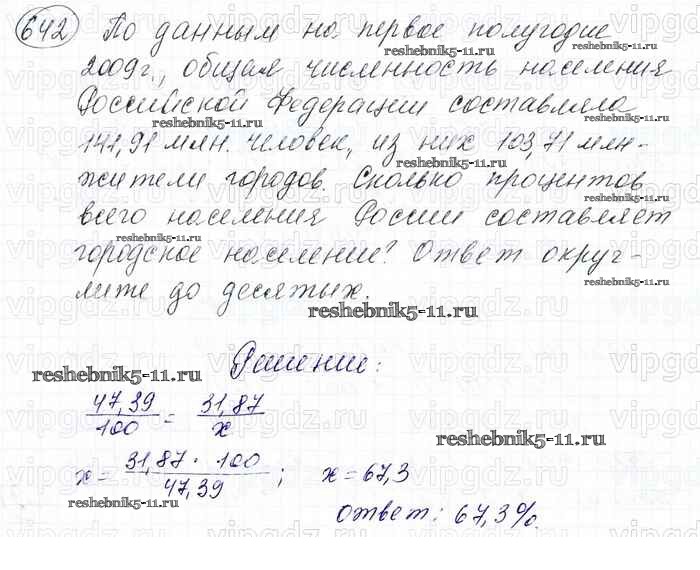 642 По данным на первое полугодие
2009г., общая численность населения
Российской Федерации составляла
141,91 млн. человек, из них 103,71 млн-
жители городов. Сколько процентов
всего населения России составляет
городское население? Ответ округ-
лите до десятых.
Решение:
47,39/100 = 31,87/x
x = 31,87 · 100/47,39 ; x = 67,3
ответ: 67,3%.
reshebnik5-11.ru
reshebnik5-11.ru
reshebnik5-11.ru
reshebnik5-11.ru
reshebnik5-11.ru
reshebnik5-11.ru
reshebnik5-11.ru
reshebnik5-11.ru
reshebnik5-11.ru
reshebnik5-11.ru
vipgdz.ru